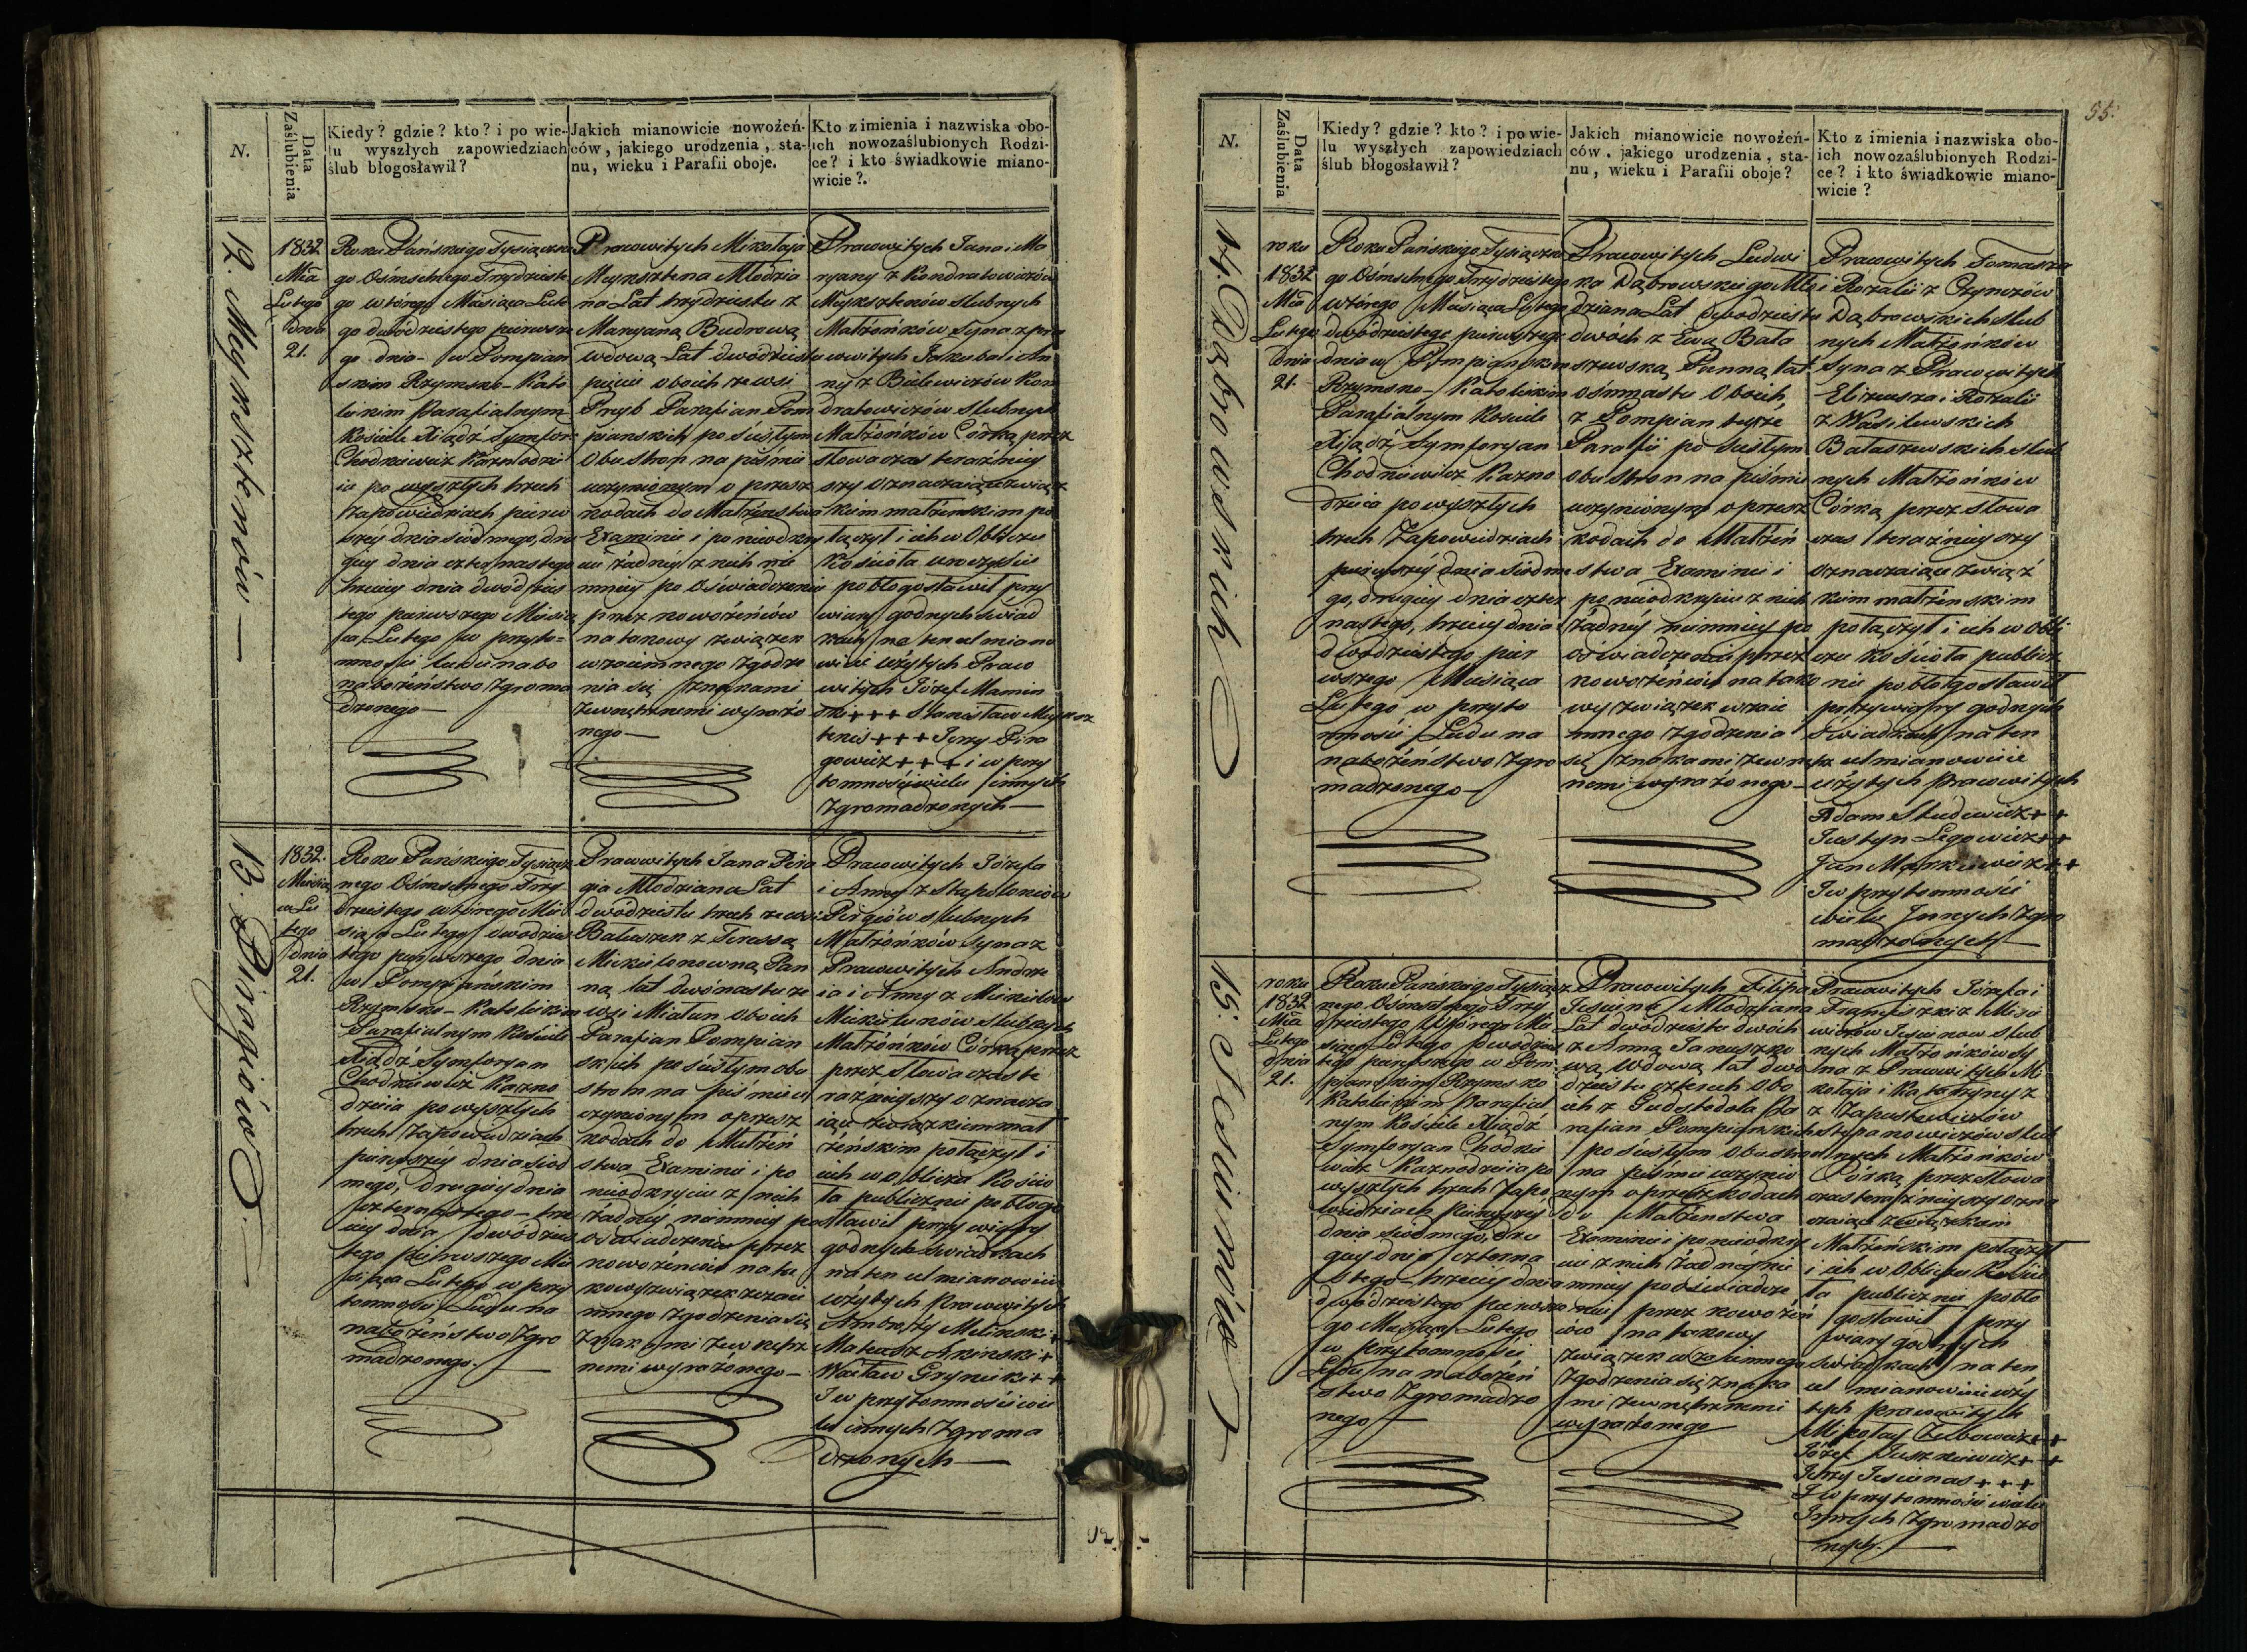 N.
Data
Zaślubienia
Kiedy? gdzie? kto? i po wie-
lu wyszłych zapowiedziach
ślub błogosławił?
Jakich mianowicie nowożeń-
ców, jakiego urodzenia, sta-
nu, wieku i Parafii oboje.
Kto z imienia i nazwiska obo-
ich nowozaślubionych Rodzi-
ce? i kto świadkowie miano-
wicie?.
12.
1832
Mca
Lutego
dnia
21.
Roku Pańskiego Tysiączne
go Ośmsetnego Trzydzieste
go wtórego Miesiąca Lute
go dwódziestego pierwsze
go dnia w Pompian
skim Rzymsko-Kato
lickim Parafialnym
Kościele Xiądz Symfor:
Chodkiewicz Kaznodzie
ia po wyszłych trzech
Zapowiedziach pierw
szey dnia siódmego, dru
giey dnia czternastego
trzeciey dnia dwódzies
tego pierwszego Miesią
ca Lutego w przyto=
mności ludu na bo
nabożeństwo zgroma
dzonego—
Pracowitych Mikołaja
Meyksztena Młodzia
na Lat trzydziestu z
Maryaną Budrową
wdową Lat dwódziestu
pięciu oboich ze wsi
Parafian Pom
pianskich po ścisłym
Obu stron na piśmie
uczynionym o przesz
kodach do Małżeństwa
Examinie i po nieodkry
ciu żadney z nich nie
mniey po oświadczeniu
przez nowożeńców
na takowy związek
wzaiemnego zgodze
nia się znakami
zewnętrznemi wyrażo
nego—
Pracowitych Jana i Ma
ryany z Kondratowiczów
Meyksztenów slubnych
Małżonków Syna z pra
cowitych Jakuba i An
ny z Bielewiczów Kon
dratowiczów Slubnych
Małżonków Córką przez
słowa czas teraźniey
szy oznaczaiące związ
kiem małżenskim po
łączył i ich w Obliczu
Kościoła uroczyście
pobłogosławił przy
wiary godnych świad
kach na ten cel miano
wicie użytych Praco
witych Józef Mamin
ski +++ Stanisław Meyksz
tenas +++ Jerzy Pira
gowicz +++ i w przy
tomności wielu innych
Zgromadzonych—
13. Piragiów
1832.
Miesią
ca Lu
tego
dnia
21.
Roku Pańskiego Tysiącz
nego Ośmsetnego Trzy
dziestego wtórego Mie
siąca Lutego dwódzies
tego pierwszego dnia
w Pompiańskim
Rzymsko-Katolickim
Parafialnym Kościele
Xiądz Symforyan
Chodkiewicz Kazno
dzieia po wyszłych
trzech Zapowiedziach
pierwszey dnia siód
mego, drugiey dnia
czternastego – trze
ciey dnia dwódzies
tego pierwszego Mie
siąca Lutego w przy
tomności Ludu na
nabożeństwo Zgro
madzonego.—
Pracowitych Jana Pira
gia Młodziana Lat
dwódziestu trzech ze wsi
Balwszek z Teressą
Mickielonowną Pan
ną lat dwónastu ze
wsi Miatun Oboich
Parafian Pompian
skich po ścisłym obu
stron na piśmie u
czynionym o przesz
kodach do Małżeń
stwa Examinie i po
nieodkryciu z nich
żadney niemniey po
oświadczeniu przez
nowożeńców na ta
kowy związek wzaie
mnego zgodzenia się
Znakami zewnętrz
nemi wyrażonego—
Pracowitych Józefa
i Anny z Stapolonców
Pirgiów slubnych
Małżonków Syna z
Pracowitych Andrze
ia i Anny z Mickielów
Mickielunów slubnych
Małżonków Córką przez
przez słowa czas te
raźnieyszy oznacza
iące związkiem mał
żeńskim połączył i
ich w obliczu Kościo
ła publicznie pobłogo
sławił przy wiary
godnych świadkach
na ten cel mianowicie
użytych Pracowitych
Ambroży Melinski ++
Mateusz Akinski +
Wacław Gryncki ++
I w przytomności wie
lu innych Zgroma
dzonych—
55.
N.
Data
Zaślubienia
Kiedy? gdzie? kto? i po wie-
lu wyszłych zapowiedziach
ślub błogosławił?
Jakich mianowicie nowożeń-
ców, jakiego urodzenia, sta-
nu, wieku i Parafii oboje?
Kto z imienia i nazwiska obo-
ich nowozaślubionych Rodzi-
ce? i kto świadkowie miano-
wicie?
14. Dąbrowskich
roku
1832
Mca
Lutego
dnia
21.
Roku Pańskiego Tysiączne
go Ośmsetnego Trzydziestego
wtórego Miesiąca Lutego
dwódziestego pierwszego
dnia w Pompianskim
Rzymsko-Katolickim
Parafialnym Kościele
Xiądz Symforyan
Chodkiewicz Kazno
dzieia po wyszłych
trzech Zapowiedziach
pierwszey dnia siódme
go, drugiey dnia czter
nastego, trzeciey dnia
dwódziestego pier
wszego Miesiąca
Lutego w przyto
mności Ludu na
nabożeństwo Zgro
madzonego—
Pracowitych Ludwi
ka Dąbrowskiego Mło
dziana Lat dwódziestu
dwóch z Ewą Bała
szewską Panną lat
ośmnastu Oboich,
z Pompian teyże
Parafii po ścisłym
obu stron na piśmie
uczynionym o przesz
kodach do Małżeń
stwa Examinie i
po nieodkryciu z nich
żadney niemniey po
oświadczeniu przez
nowożeńców na tako
wy związek wzaie
mnego zgodzenia
się znakami zewnętrz
nemi wyrażonego—
Pracowitych Tomasza
i Rozalii z Czynczów
Dąbrowskich slub
nych Małżonków
Syna z Pracowitych
Elizeusza i Rozalii
z Wasilewskich
Bałaszewskich slub
nych Małżonków
Córką przez słowa
czas teraźnieyszy
oznaczaiące związ
kiem małżenskim
połączył i ich w Obli
czu Kościoła publicz
nie pobłogosławił
przy wiary godnych
Świadkach na ten
cel mianowicie
użytych Pracowitych
Adam Studewicz ++
Justyn Legowicz ++
Jan Markiewicz ++
I w przytomności
wielu Innych Zgro
madzonych—
15. Jesiunów
roku
1832
Mca
Lutego
dnia
21.
Roku Pańskiego Tysiącz
nego Ośmsetnego Trzy
dziestego Wtórego Mie
siąca Lutego dwódzies
tego pierwszego w Pom
pianskim Rzymsko
Katolickim Parafial
nym Kościele Xiądz
Symforyan Chodkie
wicz Kaznodzieia po
wyszłych trzech Zapo
wiedziach pierwszey
dnia siódmego, dru
giey dnia czterna
stego – trzeciey dnia
dwódziestego pierwsze
go Miesiąca Lutego
w przytomności
Ludu na nabożeń
stwo Zgromadzo
nego—
Pracowitych Filipa
Jesiuna Młodziana
Lat dwódziestu dwóch
z Anną Januszko
wą Wdową lat dwó
dziestu czterech Obo
ich z Gudstodola Pa
rafian Pompianskich
po ścisłym Obu stron
na piśmie uczynio
nym o przeszkodach
do Małżenstwa
Examinie i po nieodkry
ciu z nich żadney nie
mniey po oświadcze
niu przez nowożeń
ców na takowy
związek wzaiemnego
Zgodzenia się znaka
mi zewnętrznemi
wyrażonego
Pracowitych Józefa i
Franciszki z Misie
wiczów Jesiunow slub
nych Małżonków Sy
na z Pracowitych Mi
kołaja i Katarzyny z
z Zapustewiczów
Stepanowiczów slub
nych Małżonków
Córką przez słowa
czas teraźnieyszy ozna
czaiące związkiem
Małżeńskim połączył
i ich w Obliczu Kościo
ła publicznie pobło
gosławił przy
wiary godnych
świadkach na ten
cel mianowicie uży
tych Pracowitych
Mikołay Zubowicz ++
Józef Juszkiewicz ++
Jerzy Jesiunas +++
I w przytomności wielu
Innych Zgromadzo
nych.—